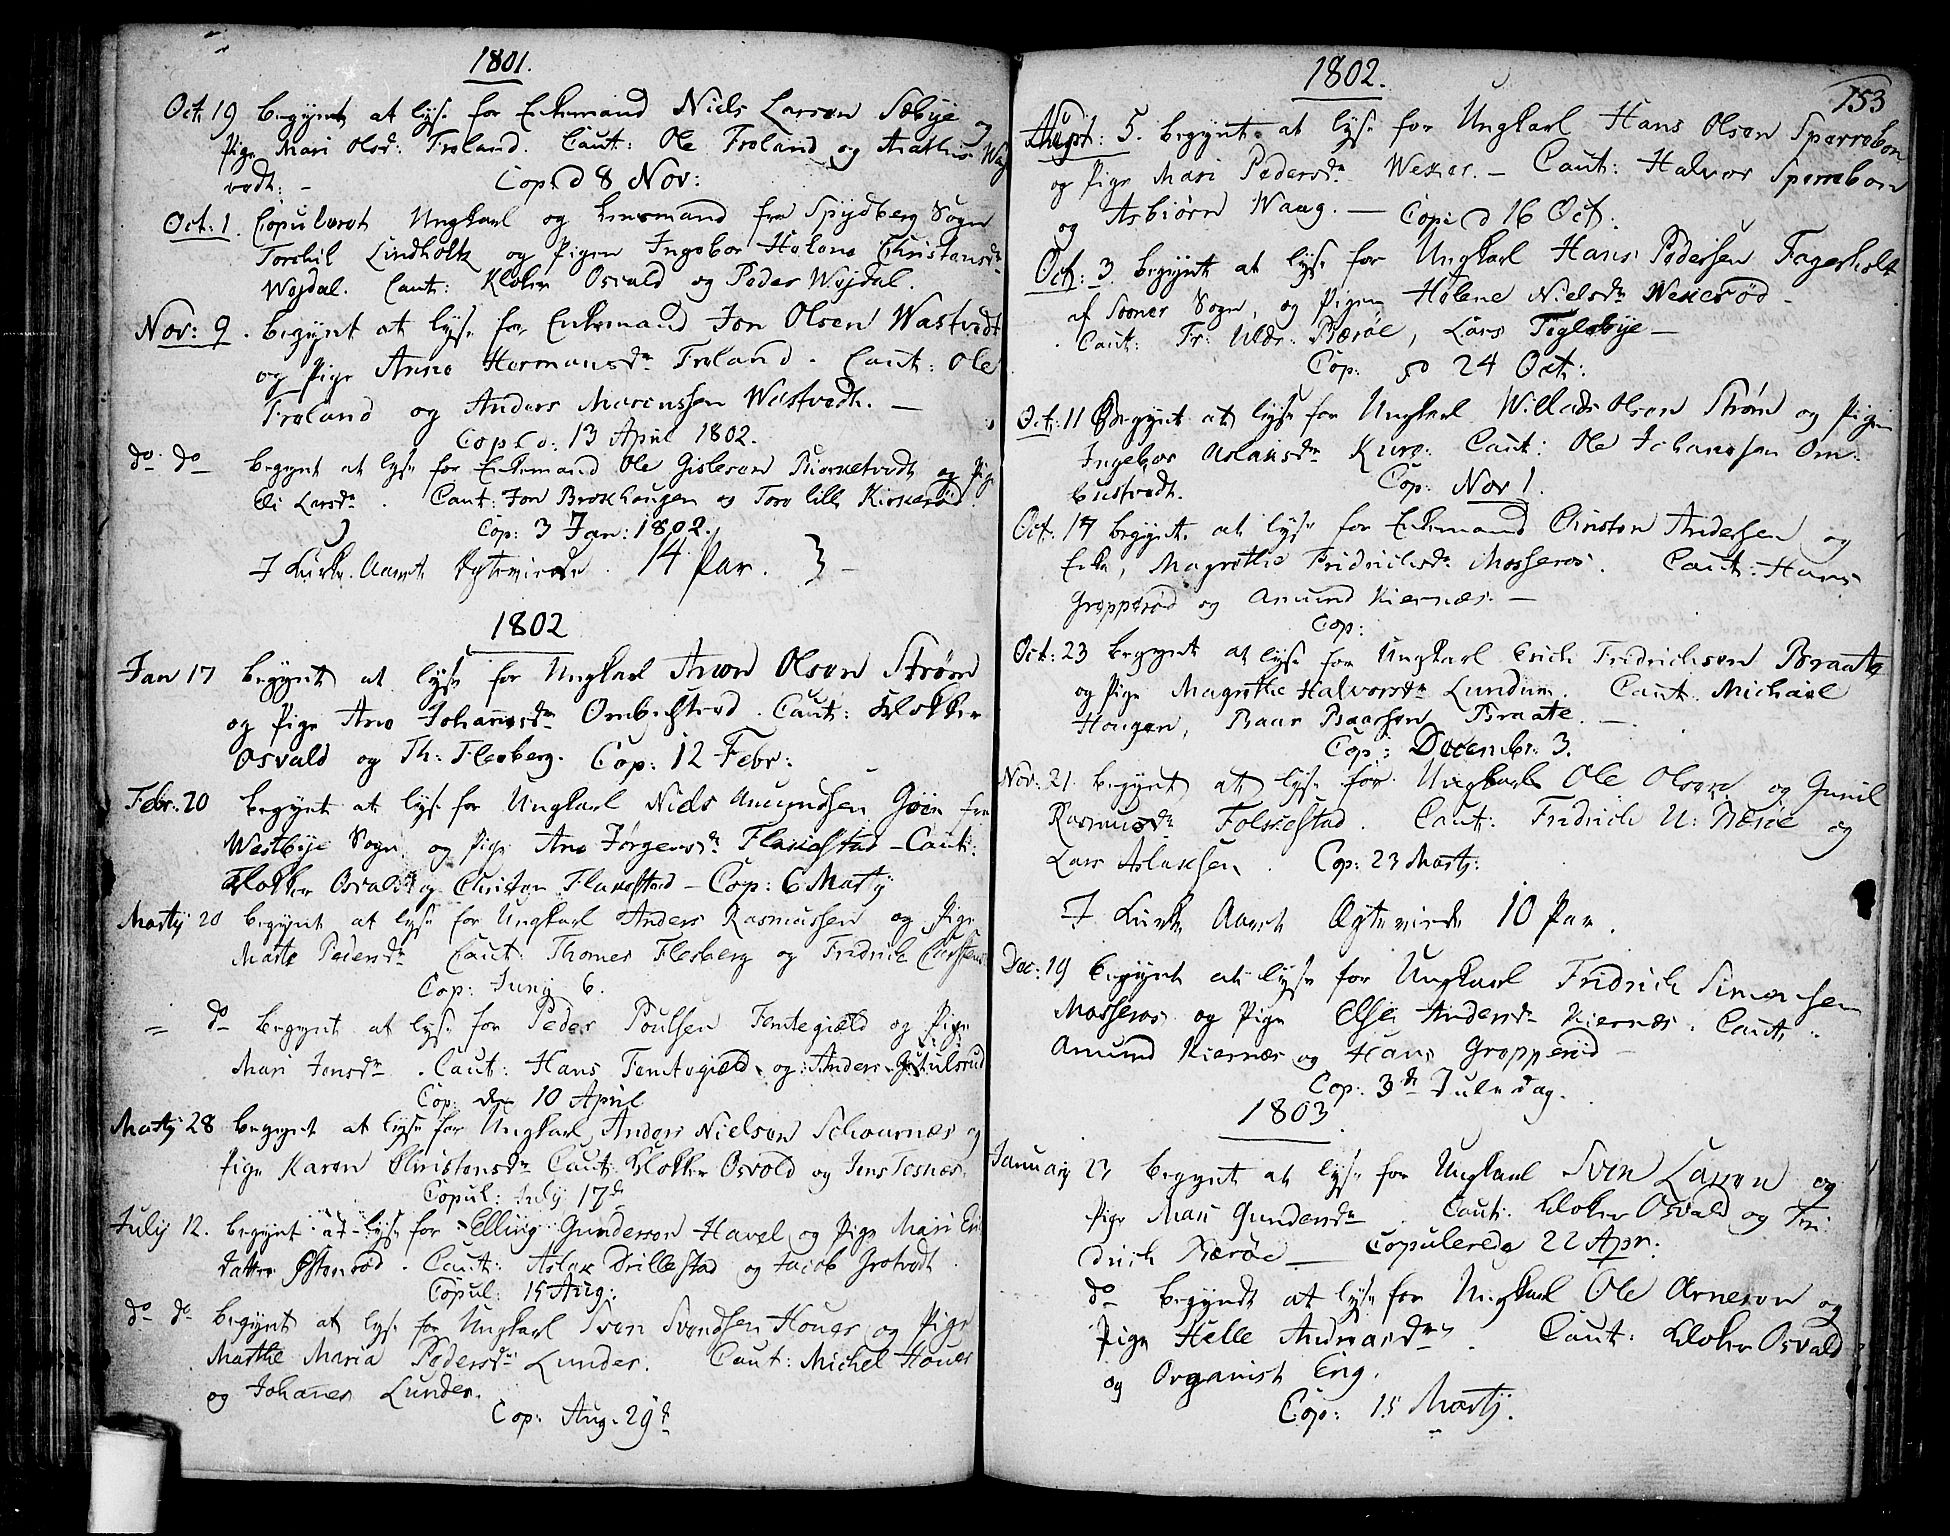 1801.
Oct. 19 begynt at lyse for Enkemand Niels Larsen Sæbye og
Pige Mari Olsd: Froland. Caut: Ole Froland og Mathis Wast
vedt: -
Cop: d 8 Nov:
Oct: 1. Copuleret Ungkarl og Lensmand fra Spydberg Sogn
Torchil Lindholtz og Pigen Ingebor Helene Christensdr
Wøjdal. Caut: Kloker Osvald og Peder Wøjdal.
Nov: 9. begynt at lyse for Enkemand Jon Olsen Wastvedt
og Pige Anne Hermansdr Froland. Caut: Ole
Froland og Anders Marenssen Wastvedt. —
Cop: d: 13 April 1802.
do do begynt at lyse for Enkemand Ole Gislesen Biørnetvedt og Pige
Eli Larsdr. Caut: Jon Brokhaugen og Tore lille Kirkerød.
Cop: 3 Jan: 1802.
I Kirke Aaret Egteviede. 14 Par. } —
1802
Jan 17 begynt at lyse for Ungkarl Aron Olsen Strøm
og Pige Ane Johannesdr Ombustved. Caut: Klokker
Osvald og Th: Flesberg. Cop: 12 Febr:
Febr: 20 begynt at lyse for Ungkarl Niels Amundsen Goën fra
Westbye Sogn og Pige Ane Jørgensdr Flakestad - Caut:
Klokker Osvald og Christen Flakestad - Cop: 6 Martj
Martij 20 begynt at lyse for Ungkarl Anders Rasmussen og Pige
Marte Pedersdr Caut: Thomes Flesberg og Fridrich Christens
Cop: Junij 6.
= do begynt at lyse for Peder Poulsen Femtegiæld og Pige
Mari Jensdr. Caut: Hans Femtegiæld og Anders Gutulsrud
Cop: den 10 April
Martj 28 begynt at lyse for Ungkarl Anders Nielsen Schournes og
Pige Karen Christensdr Caut: Klokker Osvold og Jens Tesnes.
Copul: July 17d
July 12. begynt at lyse for Elling Gundersen Havel og Pige Mari Eri
datter Østenrød. Caut: Aslak Drillestad og Jacob Grotvedt.
Copul: 15 Aug:
do do begynt at lyse for Ungkarl Sven Svendsen Houer og Pige
Marthe Maria Pedersdr Lunder. Caut: Michel Houer
og Johanes Lunder.
Cop: Aug. 29d
1802.
153
Sept: 5. begynt at lyse for Ungkarl Hans Olsen Sperrebon
og Pige Mari Pedersdr Wexer. - Caut: Halvor Sperrebon
og Asbiørn Waag. — Cop: d 16 Oct:
Oct: 3 begynt at lyse for Ungkarl Hans Pedersen Fagerholt
af Sooner Sogn, og Pigen Helene Nielsdr Wexerød -
Caut: Fr: Uldr: Bærøe, Lars Teglebye —
Cop: d 24 Oct:
Oct: 11 begynt at lyse for Ungkarl Willads Olsen Strøm og Pigen
Ingebor Aslaksdr Kure. Caut: Ole Johanesen Om:
bustvedt.
Cop: Nov 1.
Oct: 17 begynt at lyse for Enkemand Cristen Andersen og
Enke, Magrethe Fridrichsdr Mosseros. Caut: Hans
Gropperød og Amund Kiernes. —
Cop:
Oct: 23 begynt at lyse for Ungkarl Erich Fredrichsen Braate
og Pige Magrethe Halvorsdr Lundum. Caut. Michael
Hougen, Baar Baarsen Braate. —
Cop: December 3.
Nov: 21. begynt at lyse for Ungkarl Ole Olsen og Gunil
Rasmusdr Folkestad. Caut: Fridrich U: Bærøe og
Lars Aslaksen. Cop: 23 Martj:
I Kirke Aaret Egteviede 10 Par.
Dec: 19 begynt at lyse for Ungkarl Fridrich Simensen
Mosseros og Pige Else Andersdr Kiernes. Caut:
Amund Kiernes og Hans Gropperød -
Cop: 3d Juledag.
1803
January 23 begynt at lyse for Ungkarl Sven Larsen og
Pige Mari Gundersdr. Caut: Kloker Osvald og Fri
drich Bærøe — Copulerede 22 Apr:
do begyndt at lyse for Ungkarl Ole Arnesen og
Pige Helle Andreasdr. Caut: Kloker Osvald
og Organist Eng.
Cop: 15 Martj.